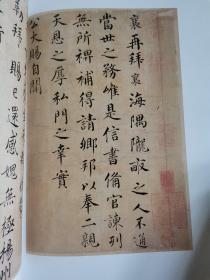 襄再拜襄海隅隴畝之人不通
當世之務唯是信書備官諫列
無所裨補得請鄉邦以奉二親
天恩之厚私門之幸實
公大賜自聞
拜賜已還感愧無極楊州